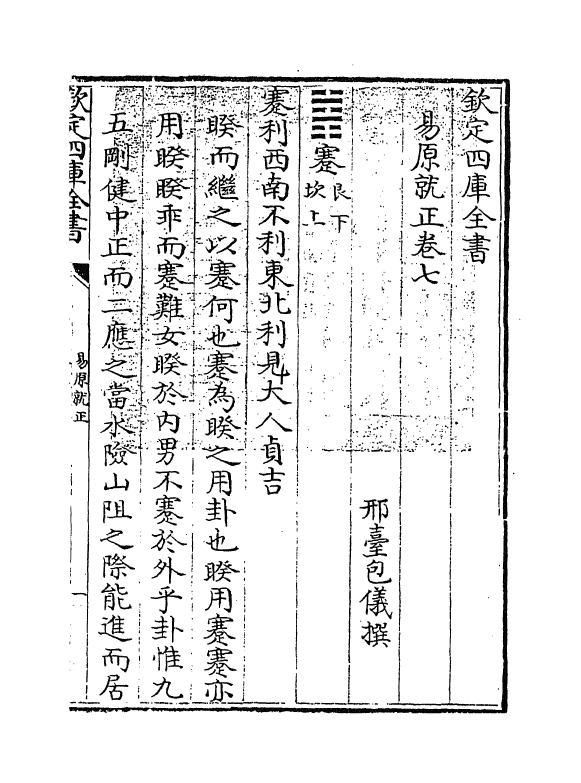 欽定四庫全書
易原就正卷七
邢臺包儀撰
䷦蹇艮下坎上
蹇利西南不利東北利見大人貞吉
睽而繼之以蹇何也蹇為睽之用卦也睽用蹇蹇亦
用睽睽乖而蹇難女睽於内男不蹇於外乎卦惟九
五剛健中正而二應之當水險山阻之際能進而居
欽定四庫全書
易原就正
一